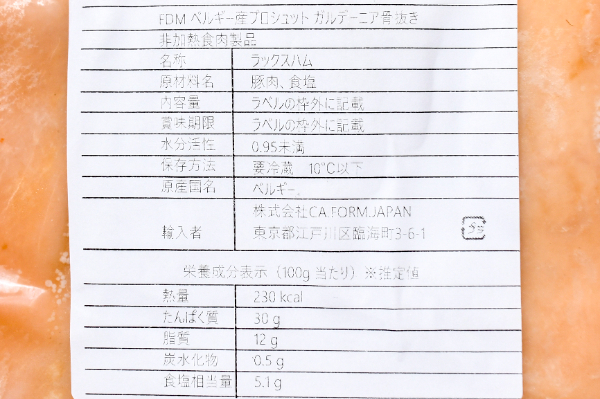 FDM ベルギー産プロシュット ガルデーニア骨抜き
非加熱食肉製品
名称 ラックスハム
原材料名 豚肉、食塩
内容量 ラベルの枠外に記載
賞味期限 ラベルの枠外に記載
水分活性 0.95未満
保存方法 要冷蔵 10℃以下
原産国名 ベルギー
株式会社CA.FORM.JAPAN
輸入者 東京都江戸川区臨海町3-6-1
プラ
栄養成分表示（100g 当たり）※推定値
熱量 230 kcal
たんぱく質 30 g
脂質 12 g
炭水化物 0.5 g
食塩相当量 5.1 g